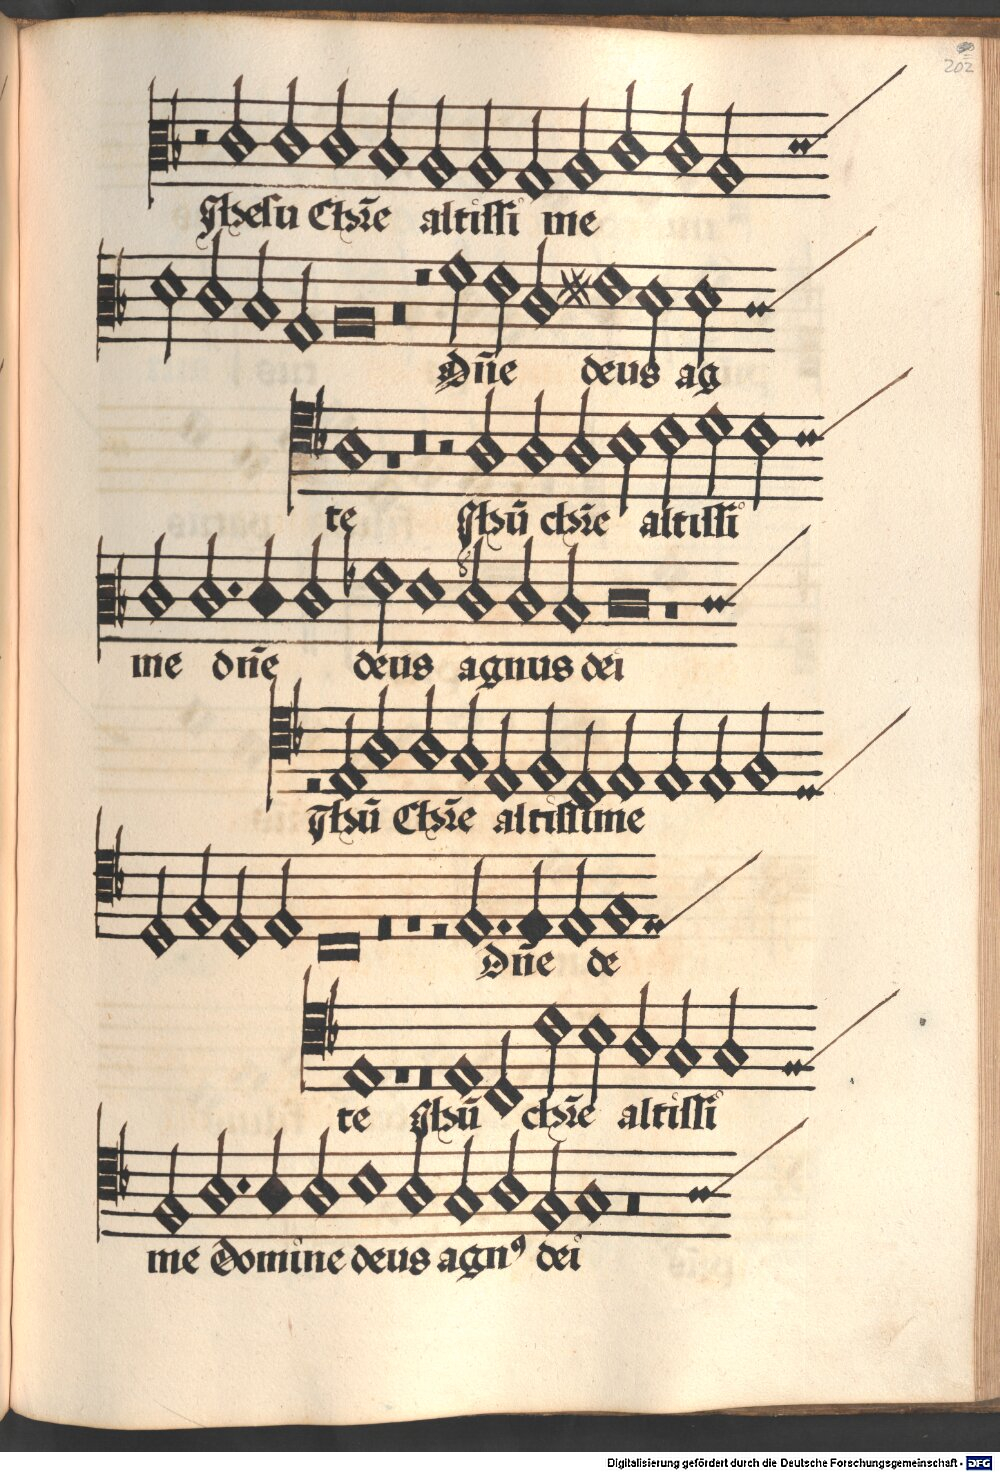 202
Jhesu Chr̄e altissi me
Dn̄e deus ag
te Jhū chr̄e altissi
me dn̄e deus agnus dei
Jhū Chr̄e altissime
Dn̄e de
te Jhū chr̄e altissi
me Domine deus agnꝰ dei
Digitalisierung gefördert durch die Deutsche Forschungsgemeinschaft - DFG